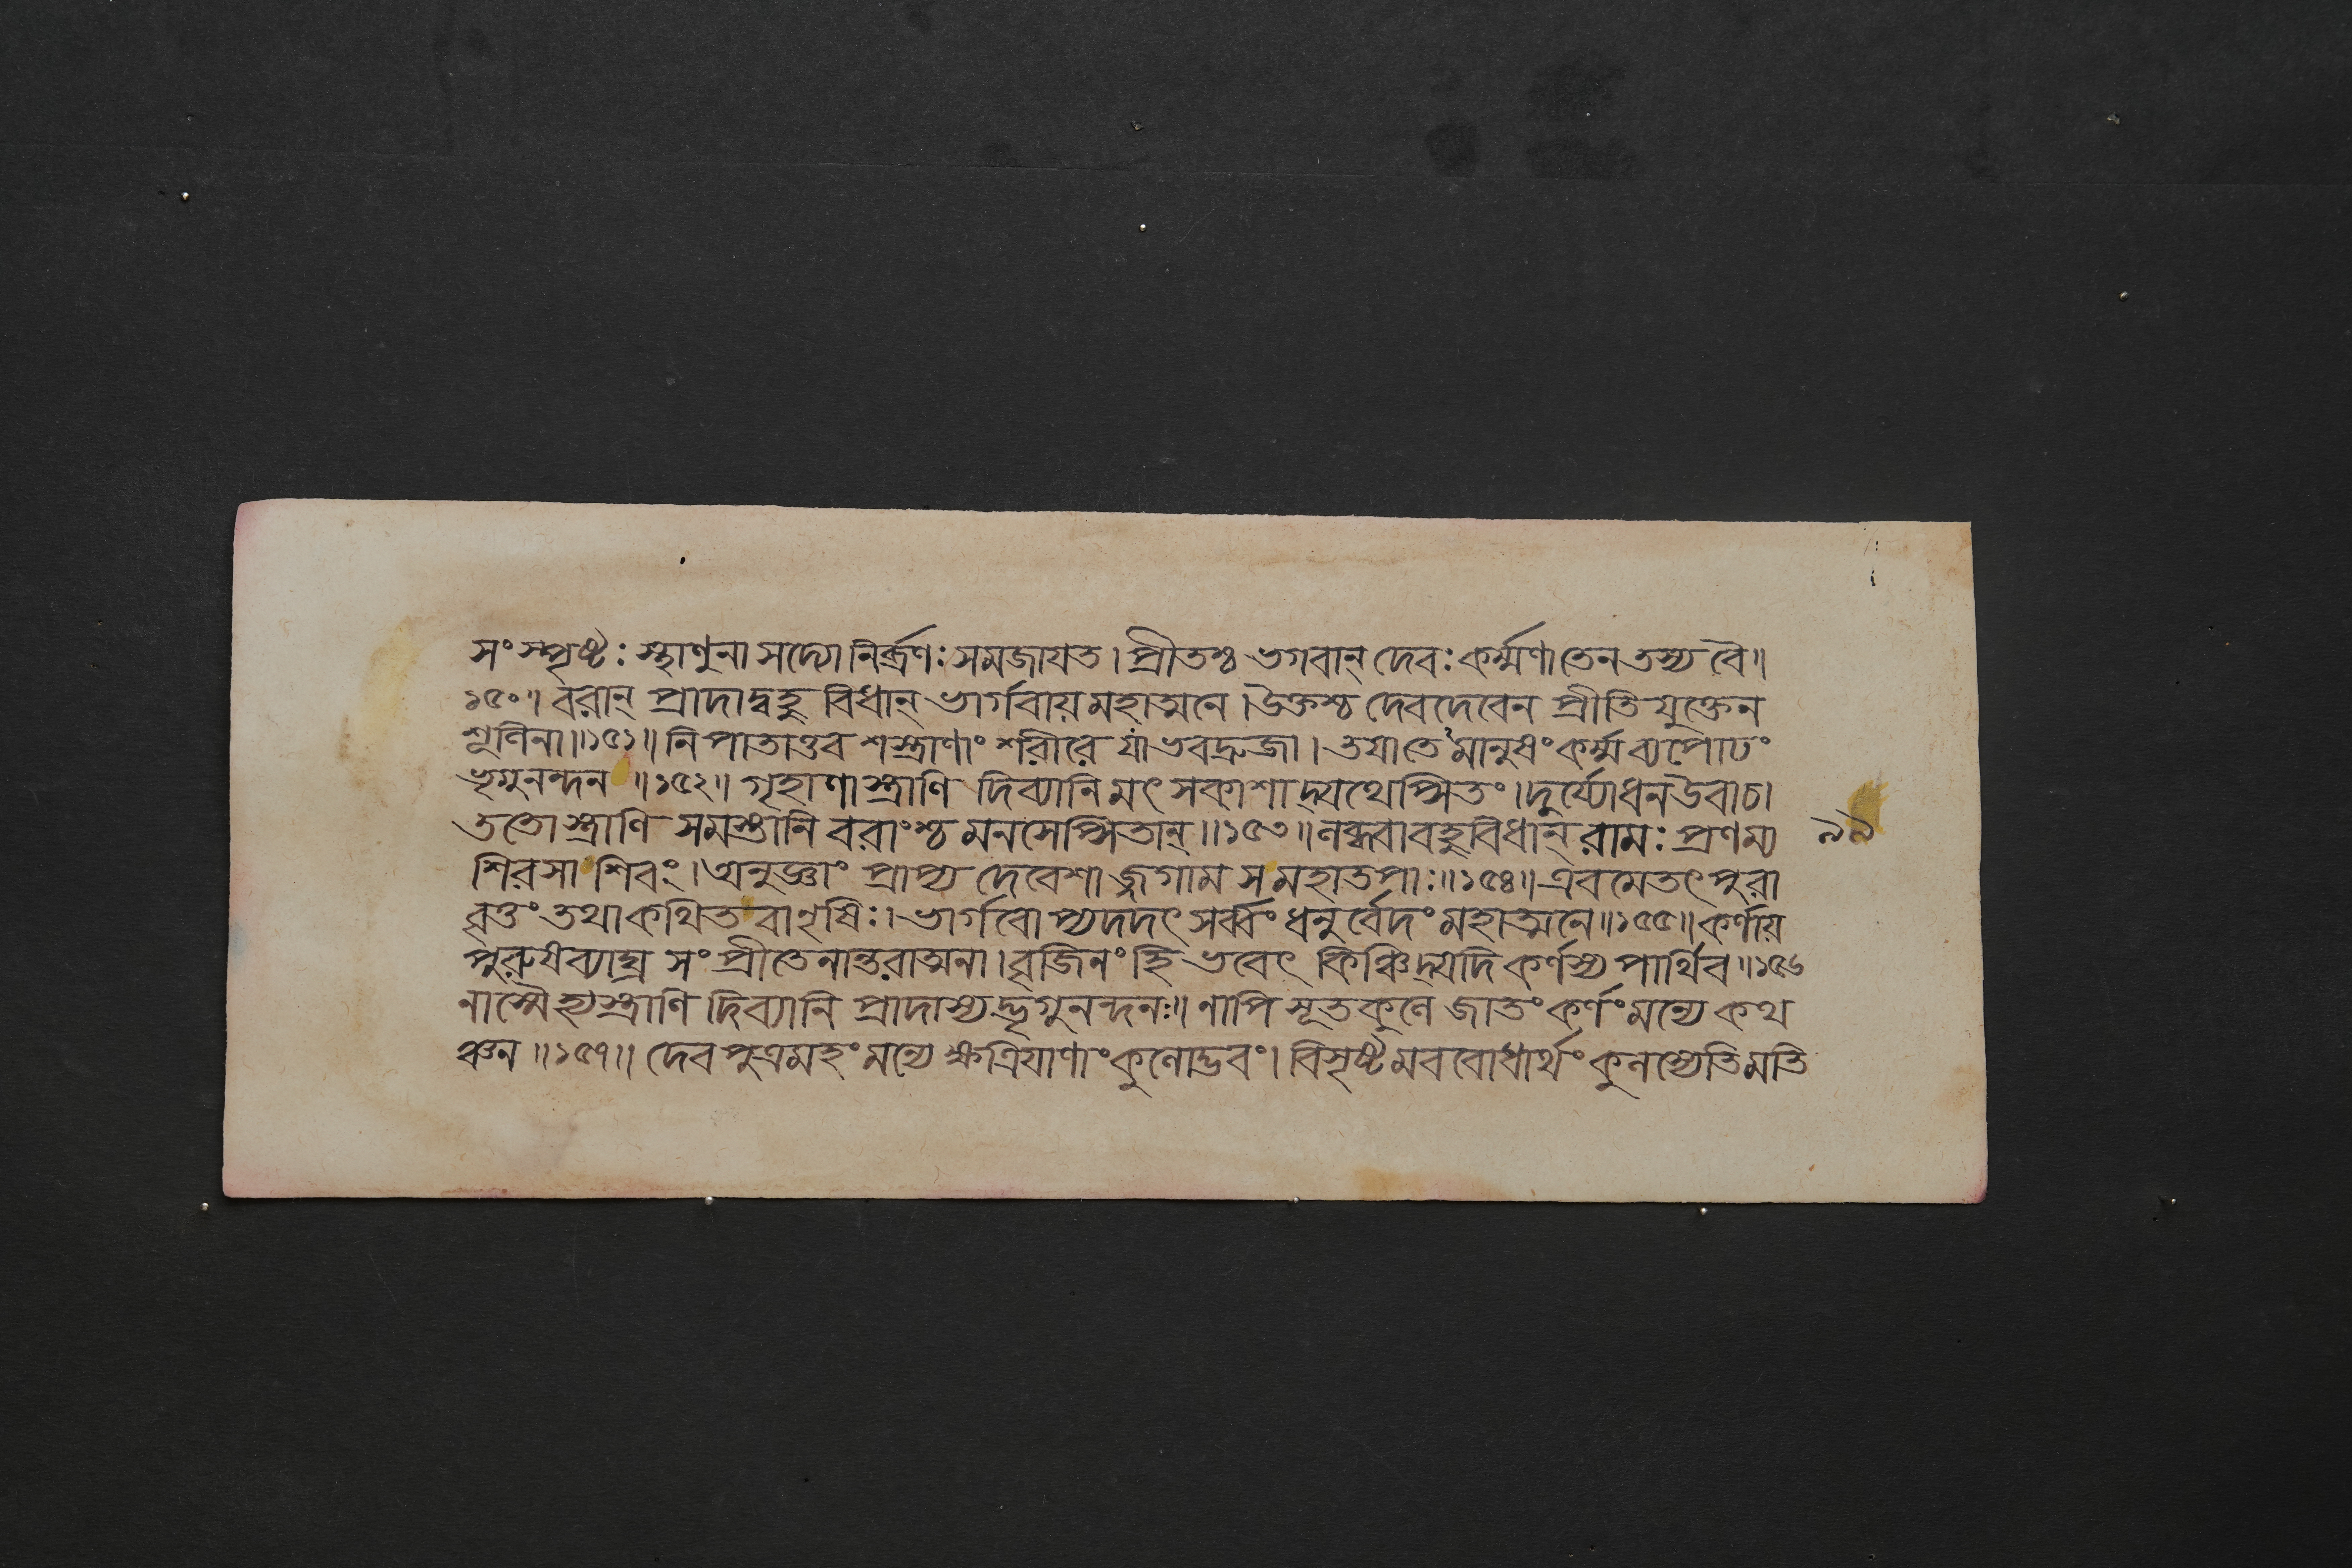 সংস্পৃষ্টঃ স্থাণুনা সদ্যো নির্ব্রণঃ সমজাযত। প্রীতশ্চ ভগবান্ দেবঃ কর্ম্মণা তেন তস্য বৈ॥
১৫০॥ বরান্ প্রাদাদ্বহুবিধান্ ভার্গবায় মহাত্মনে। উক্তশ্চ দেবদেবেন প্রীতিযুক্তেন
শূলিনা॥১৫১॥ নিপাতাত্তব শস্ত্রাণাং শরীরে যাভবদ্রুজা। তযা তে মানুষং কর্ম্ম ব্যপোঢং
ভৃগুনন্দন ॥১৫২॥ গৃহাণাস্ত্রাণি দিব্যানি মৎসকাশাদ্যথেপ্সিতং। দুর্য্যোধন উবাচ।
ততোস্ত্রাণি সমস্তানি বরাংশ্চ মনসেপ্সিতান্॥১৫৩॥ লব্ধ্বা বহুবিধান্ রামঃ প্রণম্য ৯৯
শিরসা শিবং। অনুজ্ঞাং প্রাপ্য দেবেশাজ্জগাম স মহাতপাঃ॥১৫৪॥ এবমেতৎ পুরা
বৃত্তং তথা কথিতবানৃষিঃ। ভার্গবোপ্যদদৎ সর্ব্বং ধনুর্বেদং মহাত্মনে॥১৫৫॥ কর্ণায়
পুরুষব্যাঘ্র সংপ্রীতেনান্তরাত্মনা। বৃজিনং হি ভবেৎ কিঞ্চিদ্যদি কর্ণস্য পার্থিব॥১৫৬
নাস্মৈ হ্যস্ত্রাণি দিব্যানি প্রাদাস্যদ্ভৃগুনন্দনঃ॥ নাপি সূতকুলে জাতং কর্ণং মন্যে কথ
ঞ্চন ॥১৫৭॥ দেবপুত্রমহং মন্যে ক্ষত্রিযাণাং কুলোদ্ভবং। বিসৃষ্টমববোধার্থং কুলস্যেতি মতি